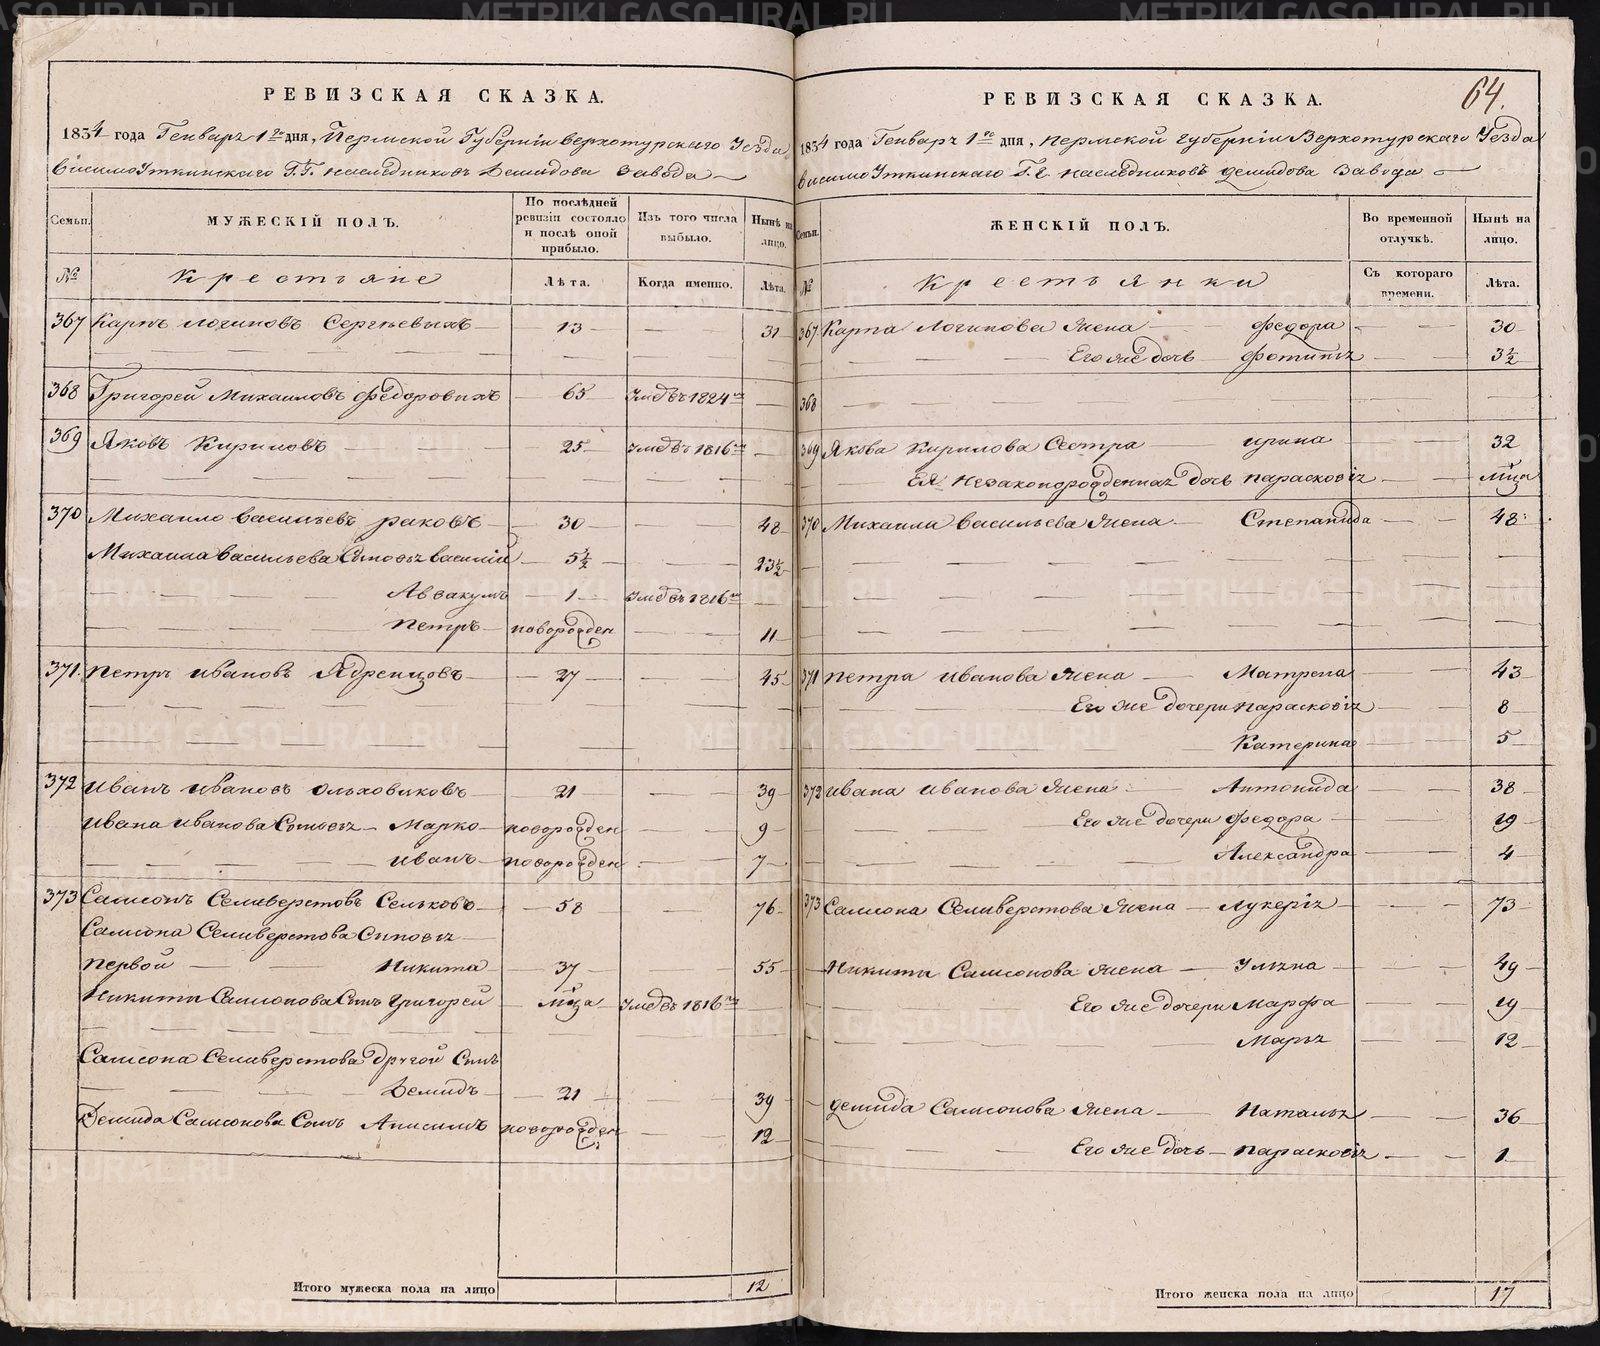 РЕВИЗСКАЯ СКАЗКА.
1834 года Генваря 1го дня, Пермской Губернiи верхотурскаго Уезда
висимоУткинскаго Г.Г. наследниковъ Демидова завода
Семьи.
МУЖЕСКIЙ ПОЛЪ.
По послѣдней ревизiи состояло и послѣ оной прибыло.
Изъ того числа выбыло.
Нынѣ на лицо.
№
Крестьяне
Лѣта.
Когда именно.
Лѣта.
367 Карпъ Логиновъ Сергѣевыхъ 13 31
368 Григорей Михаиловъ Федоровыхъ 65 Умеръ 1824
369 Яковъ Кириловъ 25 Умеръ 1816
370 Михаило васильевъ раковъ 30 48
Михаила васильева Сыновья василiй 5½ 23½
Аввакумъ 1 Умеръ 1816
Петръ новорожден 11
371. Петръ ивановъ Ядренцовъ 27 45
372 иванъ ивановъ Ольховиковъ 21 39
ивана иванова Сыновья Марко новорожден 9
иванъ новорожден 7
373 Самсонъ Селиверстовъ Сельковъ 58 76
Самсона Селиверстова Сыновья
первой Никита 37 55
Никиты Самсонова Сынъ григорей мца Умеръ 1816
Самсона Селиверстова другой Сынъ
Демидъ 21 39
Демида Самсонова Сынъ Анисимъ новорожден 12
Итого мужеска пола на лицо 12
64.
РЕВИЗСКАЯ СКАЗКА.
1834 года Генваря 1го дня, пермской губернiи Верхотурскаго Уезда
висимоУткинскаго Г.Г. наследниковъ демидова завода
Семьи.
ЖЕНСКIЙ ПОЛЪ.
Во временной отлучкѣ.
Нынѣ на лицо.
№
Крестьянки
Съ котораго времени.
Лѣта.
367 Карпа Логинова жена федора 30
Его же дочь фотинья 3½
368
369 Якова Кирилова Сестра ирина 32
Ея незаконорожденная дочь парасковiя мца
370 Михаила васильева жена Степанида 48
371 петра иванова жена Матрена 43
Его же дочери парасковiя 8
Катерина 5
372 ивана иванова жена Антонида 38
Его же дочери федора 19
Александра 4
373 Самсона Селиверстова жена Лукерiя 73
Никиты Самсонова жена Ульяна 49
Его же дочери Марфа 19
Марья 12
демида Самсонова жена Наталья 36
Его же дочь парасковiя 1
Итого женска пола на лицо 17
METRIKI.GASO-URAL.RU